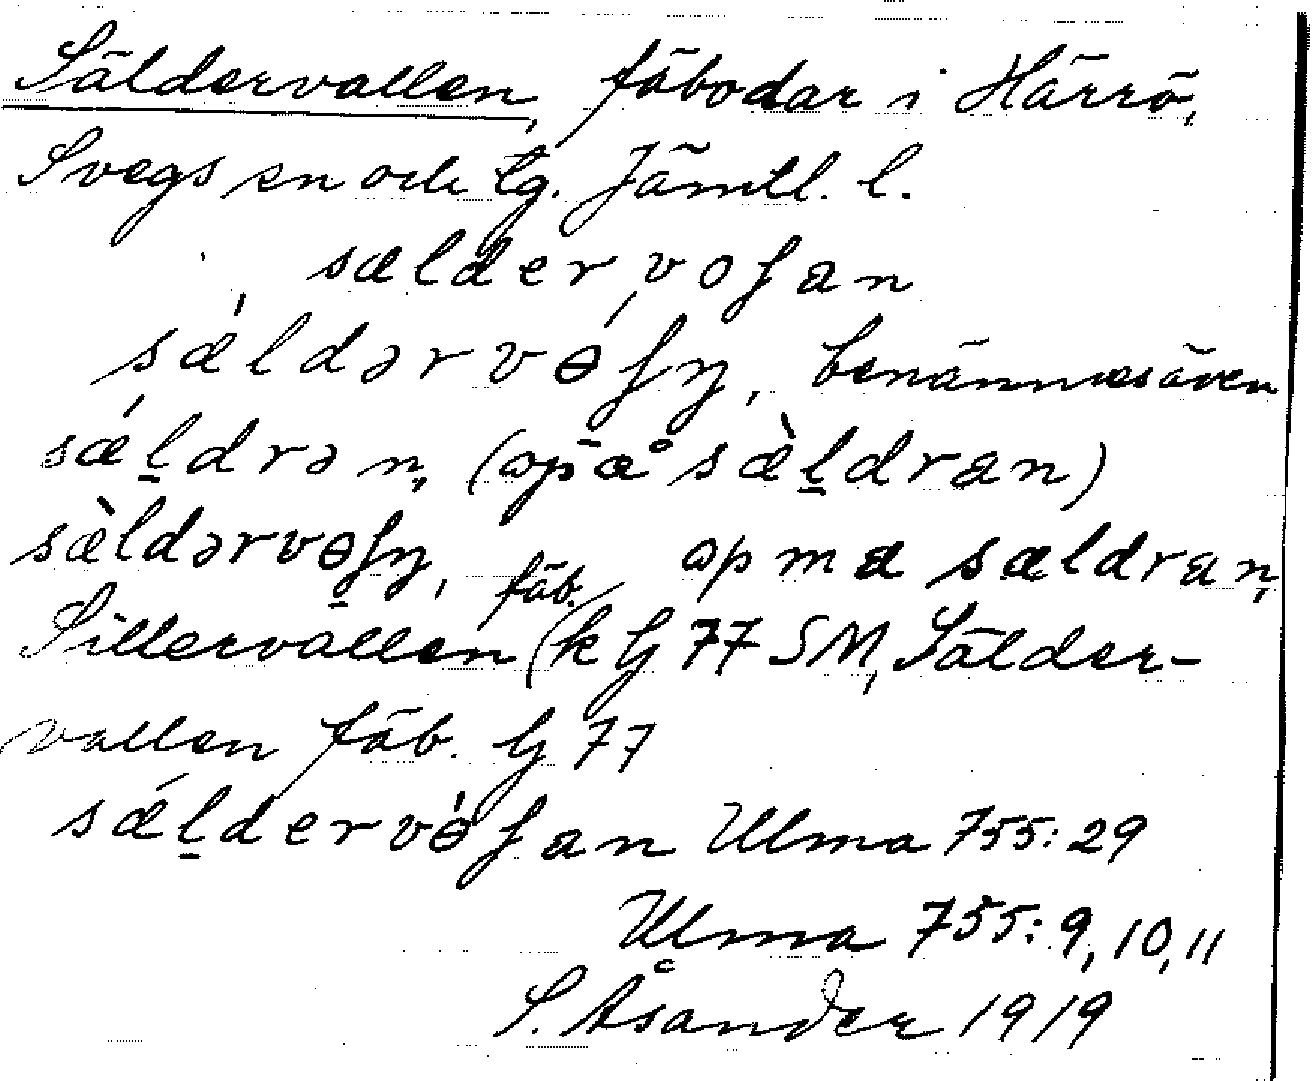 Säldervallen, fäbodar i Härrö,
Svegs sn och tg. Jämtl. l.
sældervoʃan
sǽldərvɵ́ʃn̥, benämnes även
sǽl̠drən, (opaå sæ̀l̠dran)
sæ̀ldərvɵʃn̥, opmæ sældran,
Sillervallen (fäb. k G 77 SM, Sälder-
vallen fäb. G 77
sǽl̠dervɵ̀ʃan Ulma 755:29
Ulma 755:9, 10, 11
S. Åsander 1919